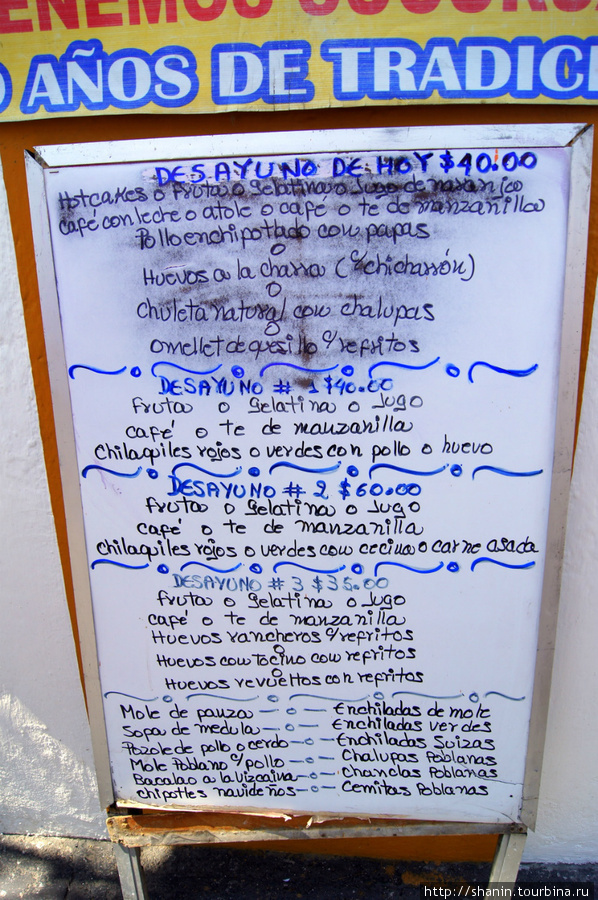 TENEMOS SUCURSA
0 AÑOS DE TRADICI
DESAYUNO DE HOY $40.00
Hotcakes o fruta o gelatina o jugo de naranja
café con leche o atole o café o te de manzanilla
Pollo enchipotlado con papas
o
Huevos a la charra (c/chicharrón)
o
Chuleta natural con chalupas
o
omellet de quesillo c/refritos
DESAYUNO # 1 $40.00
fruta o gelatina o Jugo
café o te de manzanilla
chilaquiles rojos o verdes con pollo o huevo
DESAYUNO # 2 $60.00
fruta o gelatina o Jugo
café o te de manzanilla
chilaquiles rojos o verdes con cecina o carne asada
DESAYUNO # 3 $35.00
fruta o gelatina o Jugo
café o te de manzanilla
Huevos rancheros c/refritos
o
Huevos con Tocino con refritos
o
Huevos revueltos con refritos
Mole de panza — o — Enchiladas de mole
Sopa de medula — o — Enchiladas verdes
Pozole de pollo o cerdo — o — Enchiladas Suizas
Mole Poblano c/pollo — o — Chalupas Poblanas
Bacalao a la Vizcaina — o — Chanclas Poblanas
chipotles navideños — o — Cemitas Poblanas
http://shanin.tourbina.ru/